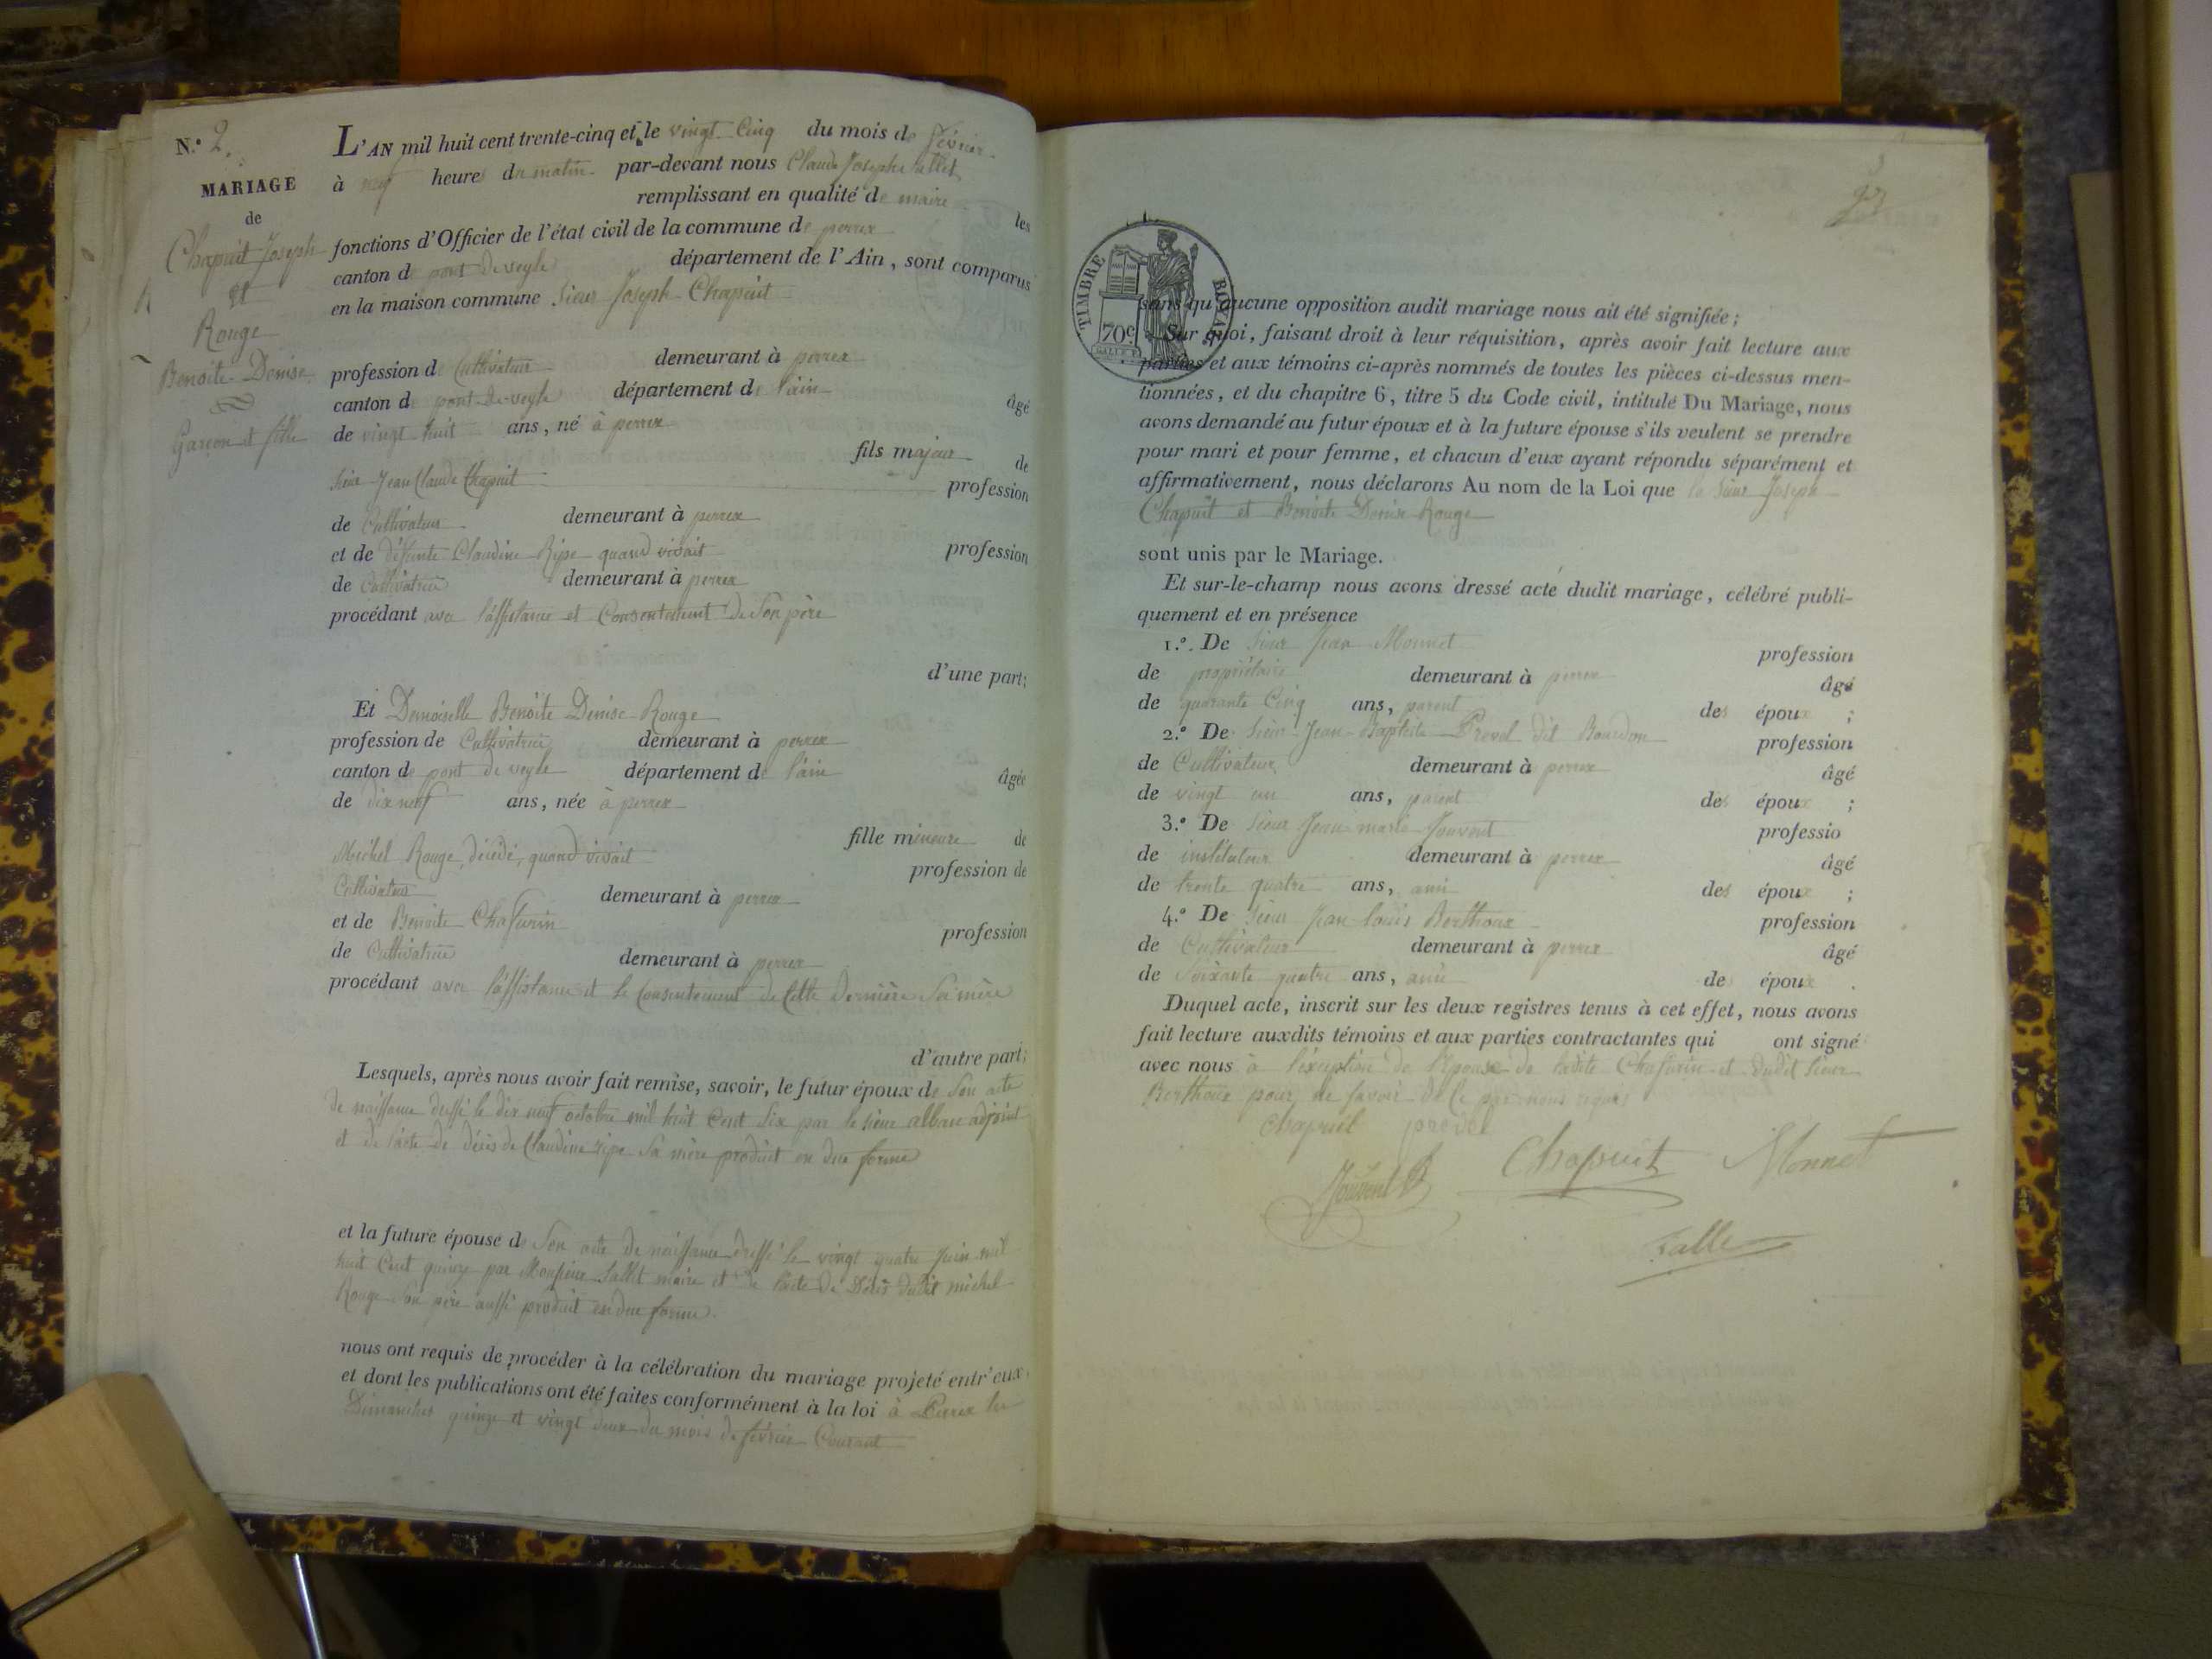 N.º 2.
MARIAGE
de
Chapuit Joseph
et
Rouge
Benoite Denise
Garçon et fille
L'AN mil huit cent trente-cinq et le vingt Cinq du mois de février
à neuf heures du matin par-devant nous Claude Joseph Sallet
remplissant en qualité de maire les
fonctions d'Officier de l'état civil de la commune de perrex
canton de pont de veyle département de l'Ain, sont comparus
en la maison commune Sieur Joseph Chapuit
profession de Cultivateur demeurant à perrex
canton de pont-de-veyle département de l'ain âgé
de vingt huit ans, né à perrex
fils majeur de
Sieur Jean Claude Chapuit profession
de Cultivateur demeurant à perrex
et de défunte Claudine Ripe quand vivait profession
de Cultivatrice demeurant à perrex
procédant avec l'assistance et Consentement de Son père
d'une part;
Et Demoiselle Benoite Denise Rouge
profession de Cultivatrice demeurant à perrex
canton de pont de veyle département de l'ain âgée
de dix neuf ans, née à perrex
fille mineure de
Michel Rouge, décédé, quand vivait profession de
Cultivateur demeurant à perrex
et de Benoite Chafurin profession
de Cultivatrice demeurant à perrex
procédant avec l'assistance et le Consentement de Cette Dernière Sa mère
d'autre part;
Lesquels, après nous avoir fait remise, savoir, le futur époux de Son acte
de naissance dressé le dix neuf octobre mil huit Cent Six par le Sieur alban adjoint
et de l'acte de décès de Claudine ripe Sa mère produit en due forme
et la future épouse de Son acte de naissance dressé le vingt quatre Juin mil
huit Cent quinze par Monsieur Sallet maire et de l'acte de Décès dudit michel
Rouge Son père aussi produit en due forme.
nous ont requis de procéder à la célébration du mariage projeté entr'eux,
et dont les publications ont été faites conformément à la loi à Perrex les
Dimanches quinze et vingt deux du mois de février Courant
TIMBRE ROYAL
70c
sans qu'aucune opposition audit mariage nous ait été signifiée;
Sur quoi, faisant droit à leur réquisition, après avoir fait lecture aux
parties et aux témoins ci-après nommés de toutes les pièces ci-dessus men-
tionnées, et du chapitre 6, titre 5 du Code civil, intitulé Du Mariage, nous
avons demandé au futur époux et à la future épouse s'ils veulent se prendre
pour mari et pour femme, et chacun d'eux ayant répondu séparément et
affirmativement, nous déclarons Au nom de la Loi que le Sieur Joseph
Chapuit et Benoite Denise Rouge
sont unis par le Mariage.
Et sur-le-champ nous avons dressé acte dudit mariage, célébré publi-
quement et en présence
1.º De Sieur Jean Monnet profession
de propriétaire demeurant à perrex âgé
de quarante Cinq ans, parent des époux ;
2.º De Sieur Jean-Baptiste Prevel dit Bourdon profession
de Cultivateur demeurant à perrex âgé
de vingt un ans, parent des époux ;
3.º De Sieur Jean marie Jouvent professio
de instituteur demeurant à perrex âgé
de trente quatre ans, ami des époux ;
4.º De Sieur Jean-louis Berthoux profession
de Cultivateur demeurant à perrex âgé
de Soixante quatre ans, ami des époux .
Duquel acte, inscrit sur les deux registres tenus à cet effet, nous avons
fait lecture auxdits témoins et aux parties contractantes qui ont signé
avec nous à l'éxception de l'épouse de ladite Chafurin et dudit Sieur
Berthoux pour ne Savoir de Ce par nous requis
Chapuit prevel
Jouvent Chapuit Monnet
Sallet